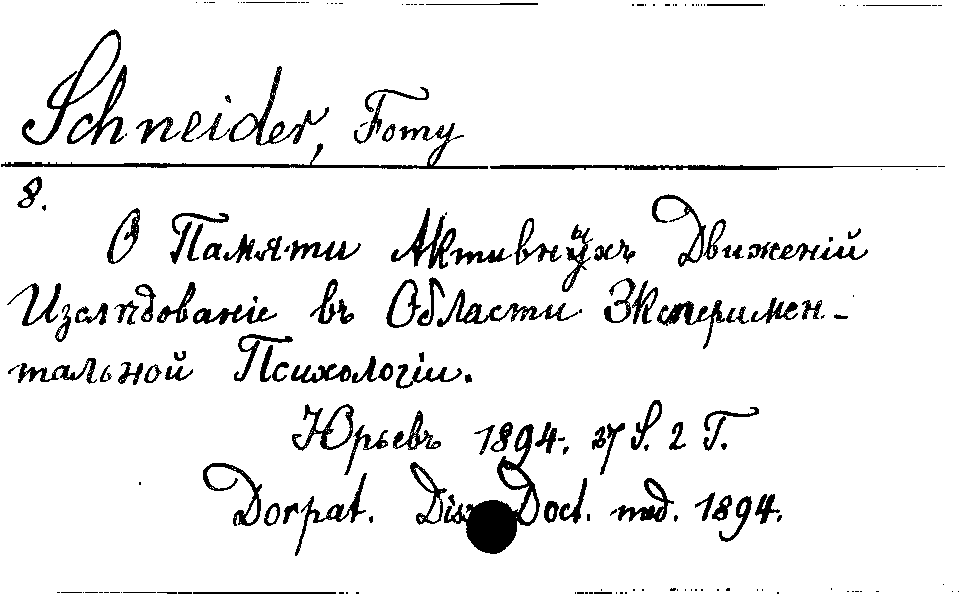 Schneider, Fomy
8.
О Памяти Активныхъ Движеній
Изслѣдованіе въ Области Эксперимен-
тальной Психологіи.
Юрьевъ 1894. 27 S. 2 T.
Dorpat. Diss. Doct. med. 1894.